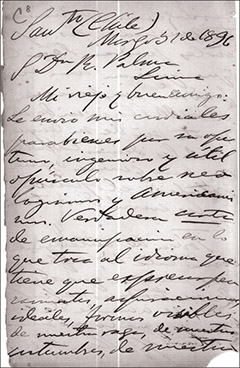 Sant. (Chile)
Marzo 31 de 1896
S. Dn R. Palma
Lima
Mi viejo y buen amigo:
Le envio mis cordiales
parabienes por su opor
tuno, ingenioso y útil
opúsculo sobre neo
logismos y American
is
Verdadera
de emancipacion en lo
que toca al idioma que
tiene que
ideales, formas visibles
de nuestra raza, de nuestras
costumbres, de nuestra